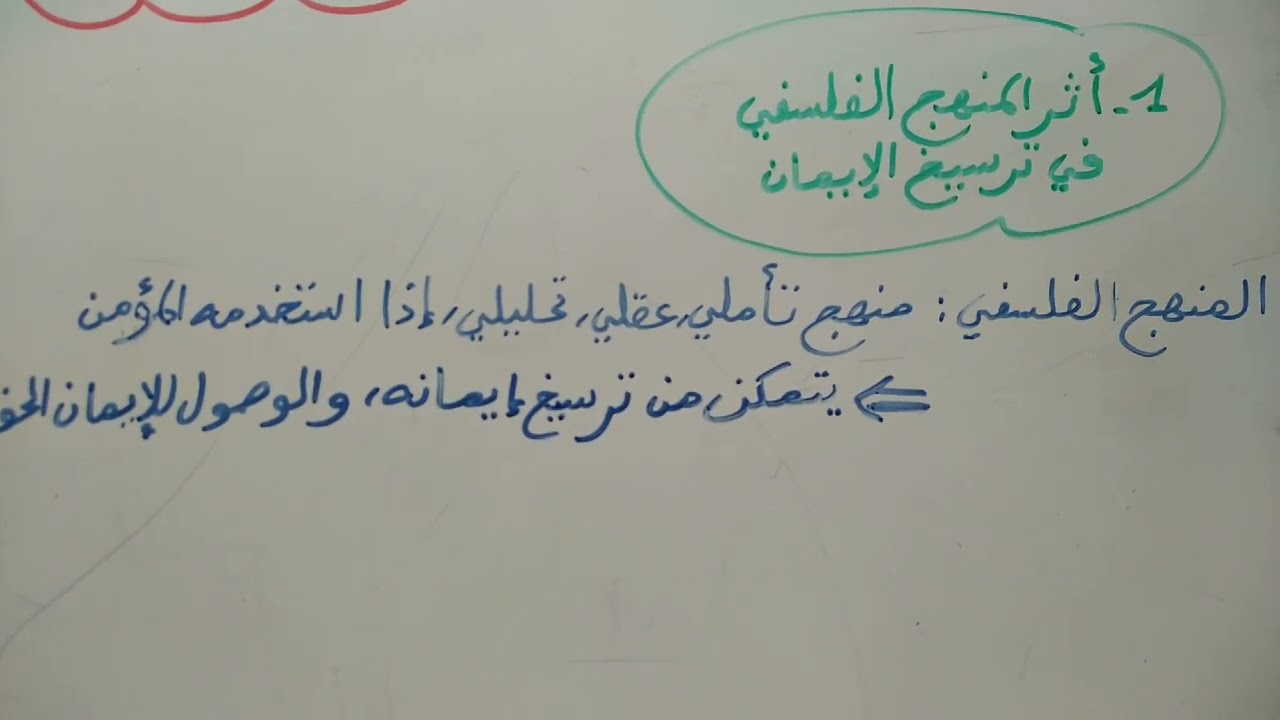 1- أثر المنهج الفلسفي
في ترسيخ الإيمان
المنهج الفلسفي: منهج تأملي، عقلي، تحليلي، إذا استخدمه المؤمن
⇐ يتمكن من ترسيخ إيمانه، والوصول للإيمان